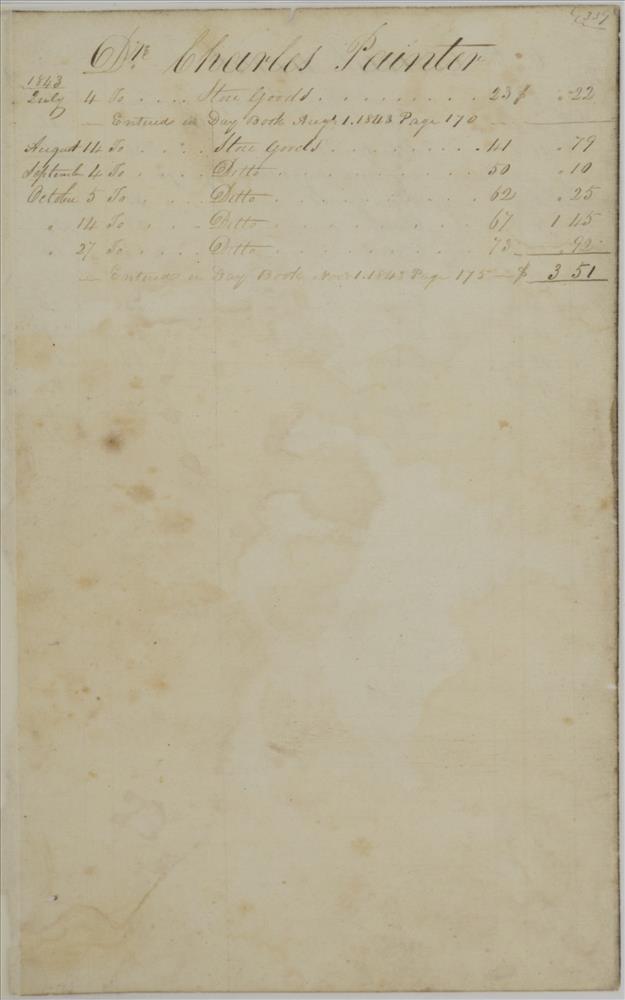 339
Dr. Charles Painter
1843
July 4 To . . . . Store Goods . . . . . . . . . 23 $ . 22
— Entered in Day Book Augt 1. 1843 Page 170 —
August 14 To . . . . Store Goods . . . . . . . . . 41 . 79
September 4 To . . . . Ditto . . . . . . . . . . . 50 . 10
October 5 To . . . . Ditto . . . . . . . . . . . 62 . 25
" 14 To . . . . Ditto . . . . . . . . . . . 67 1 45
" 27 To . . . . Ditto . . . . . . . . . . . 73 . 92
— Entered in Day Book Nov 1. 1843 Page 175 — $ 3 51